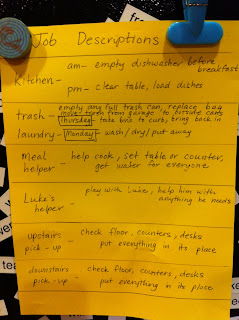 Job Descriptions
Kitchen - am - empty dishwasher before breakfast
pm - clear table, load dishes
trash - empty any full trash can, replace bag
move from garage to outside cans
Thursday - take bins to curb, bring back in
laundry - Monday - wash/dry/put away
Meal helper - help cook, set table or counter,
get water for everyone
Luke's helper - play with Luke, help him with
anything he needs
upstairs pick-up - check floor, counters, desks
put everything in its place
downstairs pick-up - check floor, counters, desks
put everything in its place